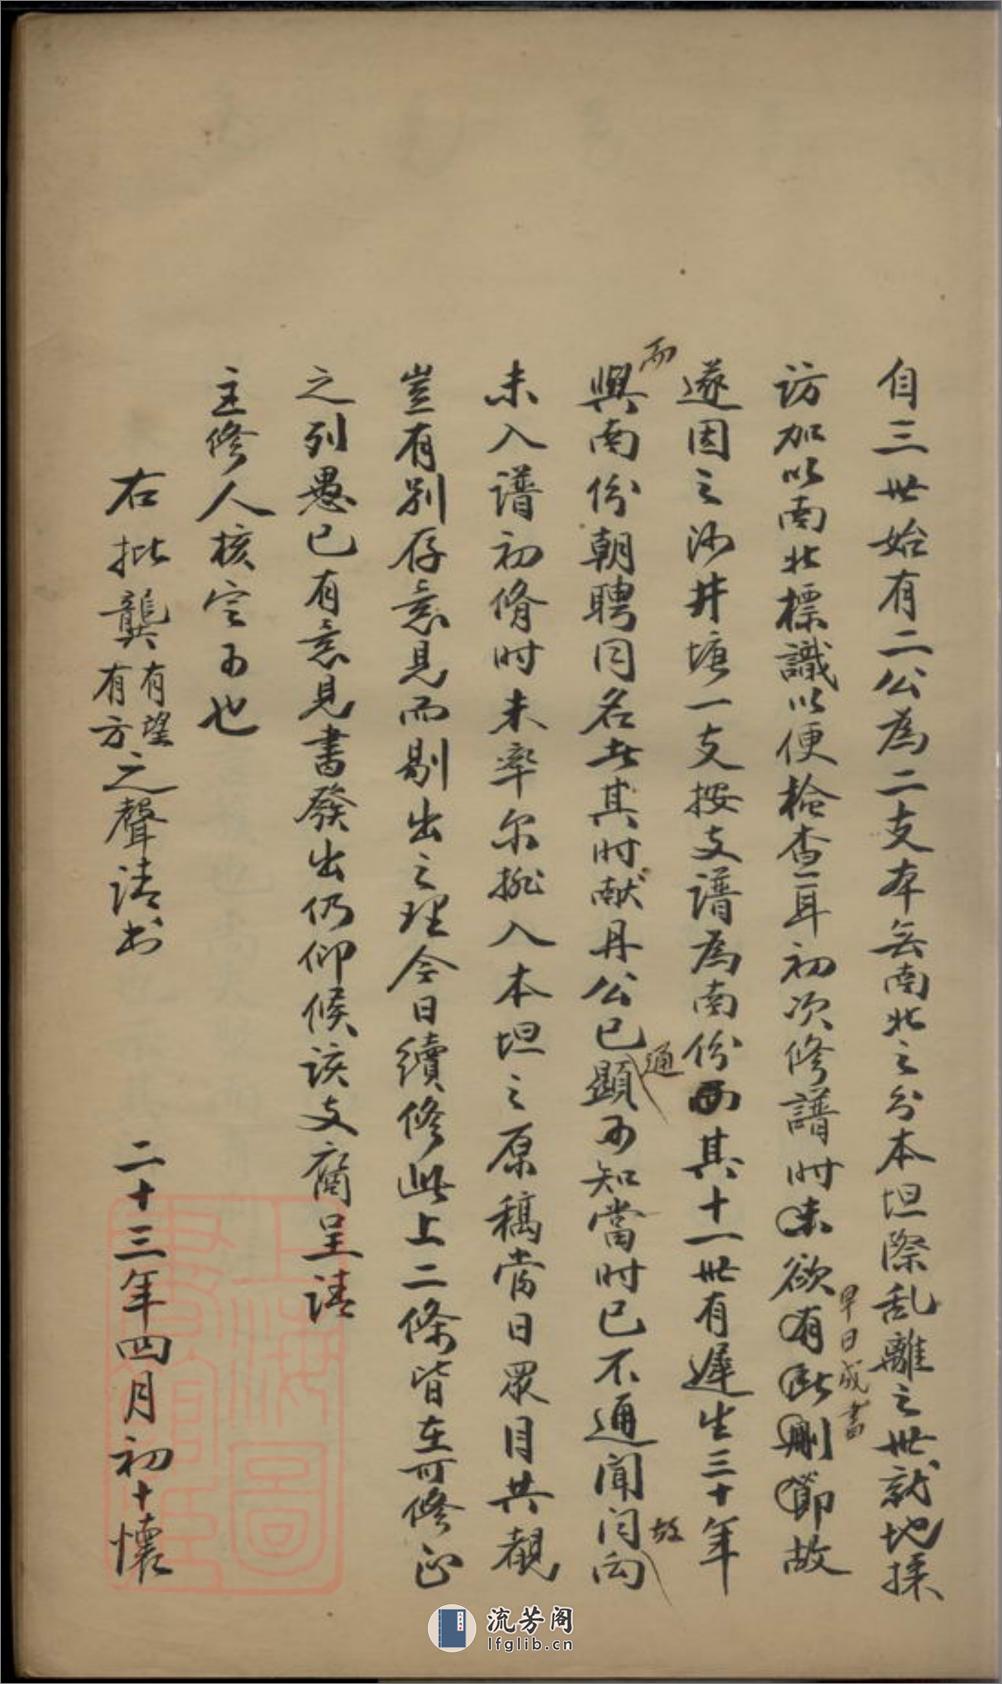 自三世始有二公為二支本無南北之分本坦際乱離之世就地採
访加以南北標識以便檢查耳初次修譜时未欲有此刪節故
早日成書
遂因之沙井塘一支按支譜為南份而其十一世有遲生三十年
而
與南份朝聘同名者其时献丹公已顯可知當时已不通聞问而
通
故
未入譜初脩时未率尔拚入本坦之原稿当日眾目共觀
豈有别存意見而剔出之理今日續修此上二條皆在可修正
之列愚已有意見書發出仍仰候该支商呈请
主修人核定可也
右批龔有望有方之聲请书
二十三年四月初十懷
上海圖書館藏
流芳阁
lfglib.cn